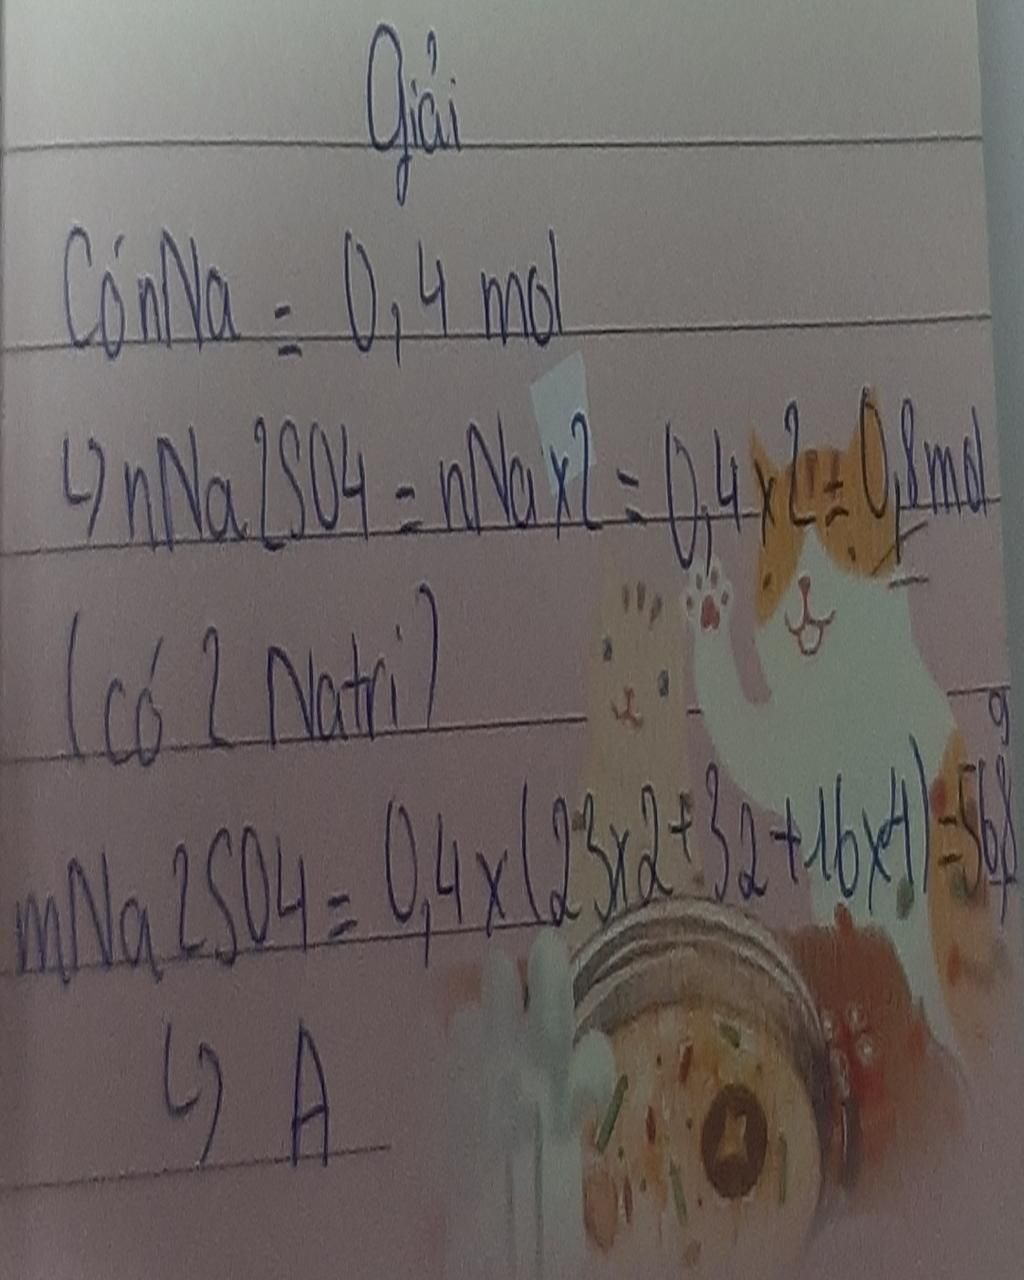 Giải
Có nNa = 0,4 mol
↳ nNa2SO4 = nNa x 2 = 0,4 x 2 = 0,8 mol
(có 2 Natri)
mNa2SO4 = 0,4 x (23x2 + 32 + 16x4) = 56,8 g
↳ A